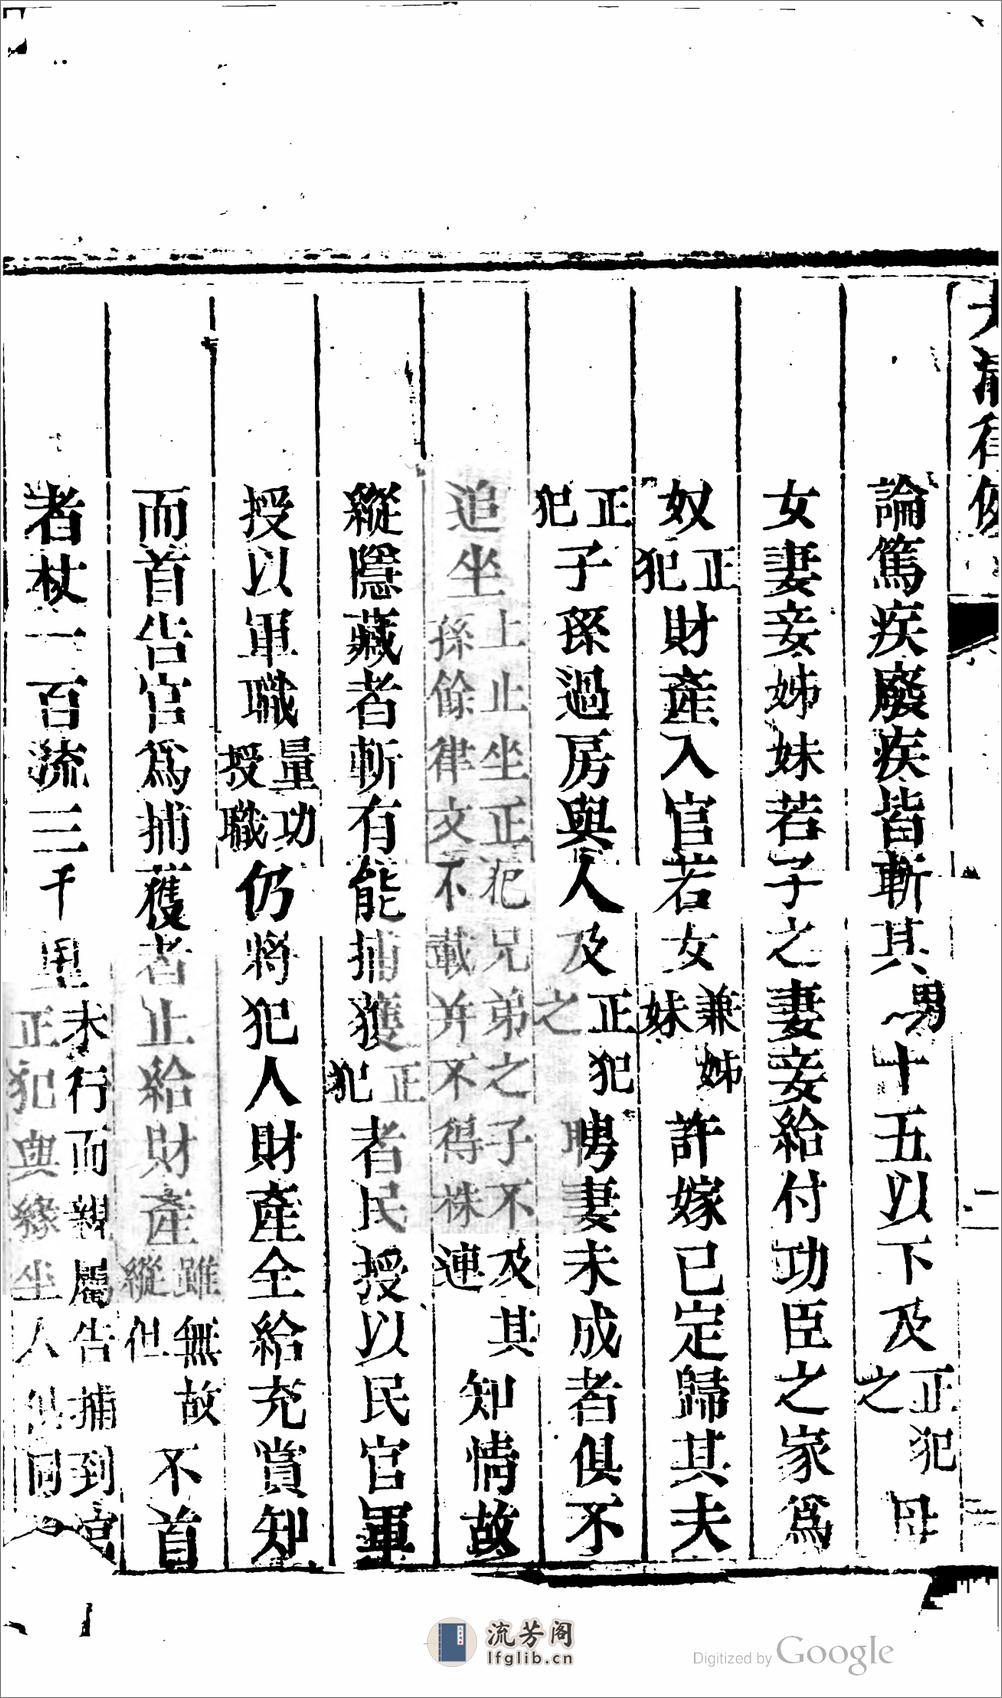 大清律例
論篤疾廢疾皆斬其男十五以下及正犯之母
女妻妾姊妹若子之妻妾給付功臣之家爲
奴正犯財産入官若女兼姊妹許嫁已定歸其夫
正犯子孫過房與人及正犯之聘妻未成者俱不
追坐上止坐正犯兄弟之子不及其孫餘律文不載并不得株連知情故
縱隱藏者斬有能捕獲正犯者民授以民官軍
授以軍職量功授職仍將犯人財産全給充賞知
而首告官爲捕獲者止給財産雖無故縱但不首
者杖一百流三千里未行而親屬告捕到官正犯與緣坐人俱同
流芳阁
lfglib.cn
Digitized by Google